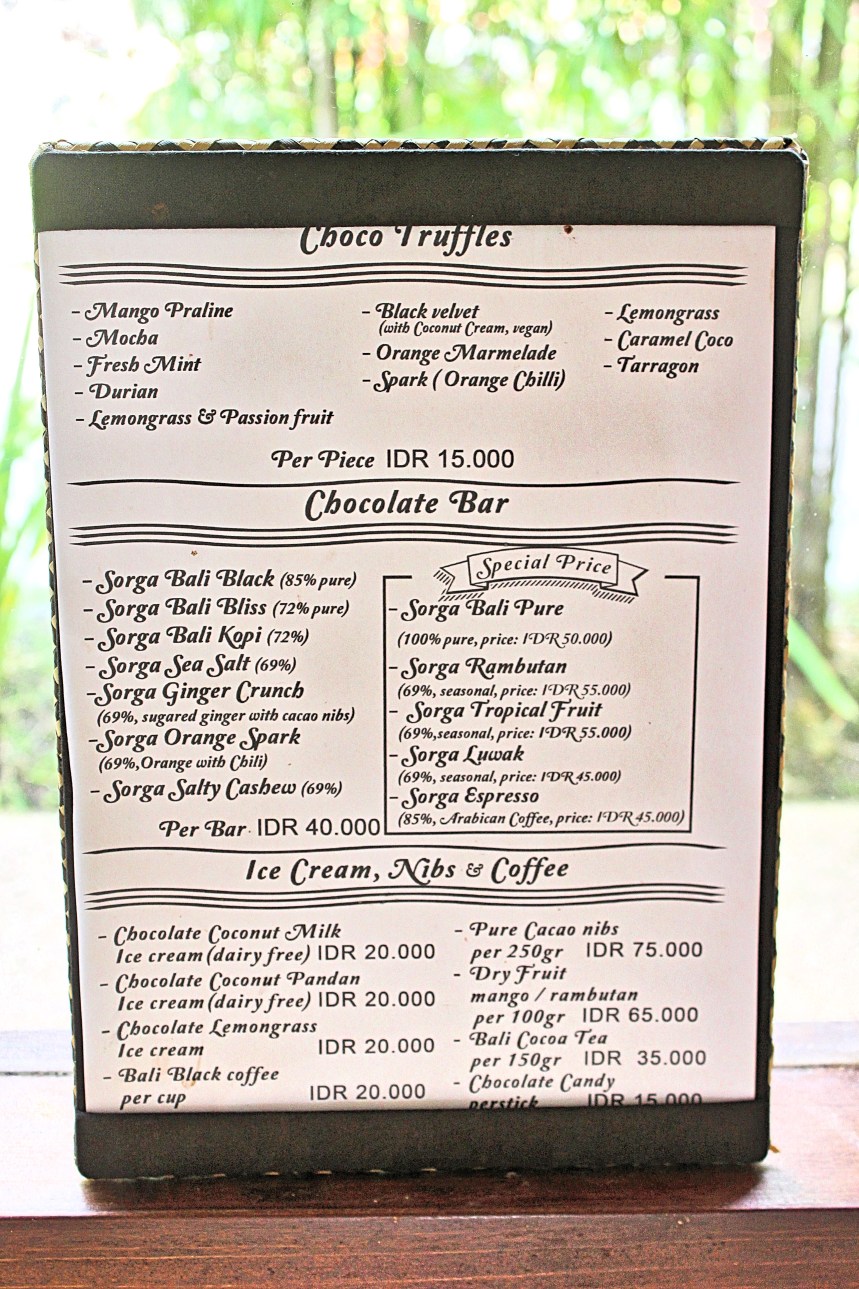 Choco Truffles
- Mango Praline
- Mocha
- Fresh Mint
- Durian
- Lemongrass & Passion fruit
- Black velvet
(with Coconut Cream, vegan)
- Orange Marmelade
- Spark ( Orange Chilli)
- Lemongrass
- Caramel Coco
- Tarragon
Per Piece IDR 15.000
Chocolate Bar
- Sorga Bali Black (85% pure)
- Sorga Bali Bliss (72% pure)
- Sorga Bali Kopi (72%)
- Sorga Sea Salt (69%)
-Sorga Ginger Crunch
(69%, sugared ginger with cacao nibs)
-Sorga Orange Spark
(69%,Orange with Chili)
- Sorga Salty Cashew (69%)
Per Bar IDR 40.000
Special Price
- Sorga Bali Pure
(100% pure, price: IDR 50.000)
- Sorga Rambutan
(69%, seasonal, price: IDR 55.000)
- Sorga Tropical Fruit
(69%,seasonal, price: IDR 55.000)
- Sorga Luwak
(69%, seasonal, price: IDR 45.000)
- Sorga Espresso
(85%, Arabican Coffee, price: IDR 45.000)
Ice Cream, Nibs & Coffee
- Chocolate Coconut Milk
Ice cream (dairy free) IDR 20.000
- Chocolate Coconut Pandan
Ice cream (dairy free) IDR 20.000
- Chocolate Lemongrass
Ice cream IDR 20.000
- Bali Black coffee
per cup IDR 20.000
- Pure Cacao nibs
per 250gr IDR 75.000
- Dry Fruit
mango / rambutan
per 100gr IDR 65.000
- Bali Cocoa Tea
per 150gr IDR 35.000
- Chocolate Candy
perstick IDR 15.000